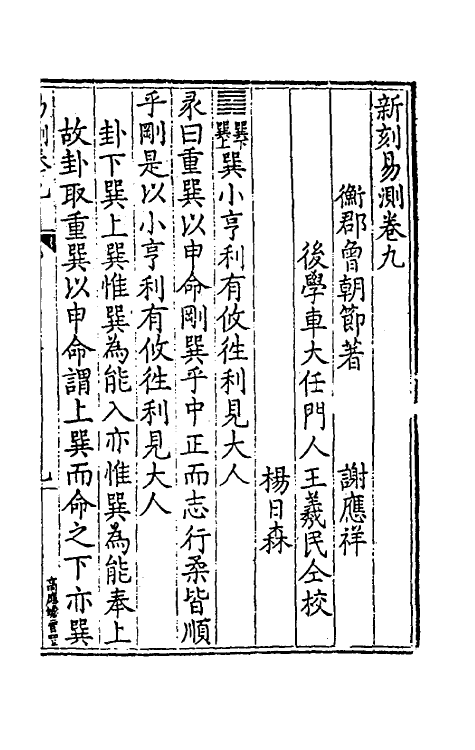 新刻易測卷九
衡郡曾朝節著　謝應祥
後學車大任門人王羲民仝校
楊日森
䷸巽下巽上巽小亨利有攸徃利見大人
彖曰重巽以申命剛巽乎中正而志行柔皆順
乎剛是以小亨利有攸徃利見大人
卦下巽上巽惟巽為能入亦惟巽為能奉上
故卦取重巽以申命謂上巽而命之下亦巽